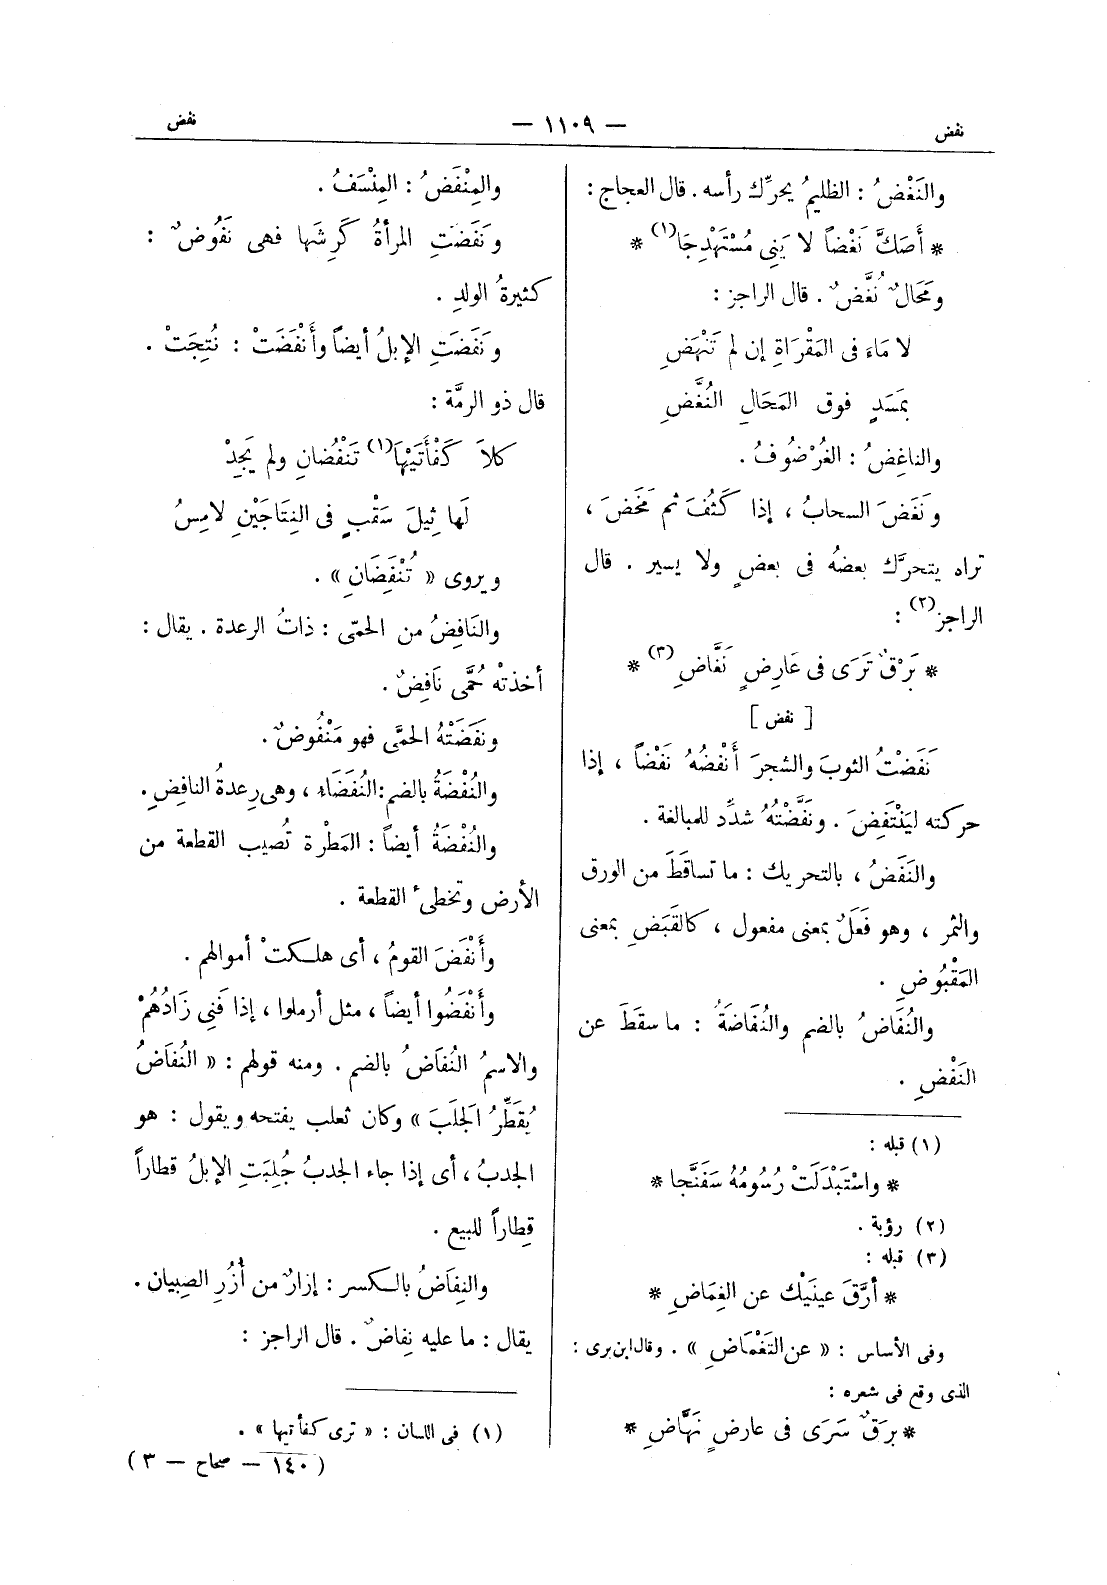 نفض
— ١١٠٩ —
نفض
والنَغْضُ : الظليمُ يحرِّك رأسه . قال العجاج :
* أَصَكَّ نَغْضاً لا يَنِى مُسْتَهْدِجَا(١) *
ومَحَالٌ نُغَّضٌ . قال الراجز :
لا مَاءَ فى المَقْرَاةِ إن لم تَنْهَضِ
بمَسَدٍ فوق المَحَالِ النُغَّضِ
والناغِضُ : الغُرْضُوفُ .
ونَغَضَ السحابُ ، إذا كَثُفَ ثم مَخَضَ ،
تراه يتحرَّك بعضهُ فى بعضٍ ولا يسير . قال
الراجز(٢) :
* بَرْقٌ تَرَى فى عَارِضٍ نَغَّاضِ(٣) *
[ نفض ]
نَفَضْتُ الثوبَ والشجرَ أَنْفُضُهُ نَفْضاً ، إذا
حركته ليَنْتَفِضَ . ونَفَّضْتُهُ شدِّد للمبالغة .
والنَفَضُ ، بالتحريك : ما تساقَطَ من الورق
والثمر ، وهو فَعَلٌ بمعنى مفعول ، كالقَبَضِ بمعنى
المَقْبُوضِ .
والنُفَاضُ بالضم والنُفَاضَةُ : ما سقطَ عن
النَفْضِ .
(١) قبله :
* واسْتَبْدَلَتْ رُسُومُهُ سَفَنَّجا *
(٢) رؤبة .
(٣) قبله :
* أرَّقَ عينَيْك عن الغِمَاضِ *
وفى الأساس : « عن التَغْمَاضِ » . وقال ابن برى :
الذى وقع فى شعره :
* برَقٌ سَرَى فى عارضٍ نَهَّاضِ *
والمِنْفَضُ : المِنْسَفُ .
ونَفَضَتِ المرأةُ كَرِشَها فهى نَفُوضٌ :
كثيرةُ الولدِ .
ونَفَضَتِ الإبلُ أيضاً وأَنْفَضَتْ : نُتِجَتْ .
قال ذو الرمَّة :
كلاَ كَفْأَتَيْهَا(١) تَنْفُضانِ ولم يَجِدْ
لَها ثِيلَ سَقْبٍ فى النِتَاجَيْنِ لامِسُ
ويروى « تُنْفَضَانِ » .
والنَافِضُ من الحمّى : ذاتُ الرعدة . يقال :
أخذتْه حُمَّى نَافِضٌ .
ونَفَضَتْهُ الحمَّى فهو مَنْفُوضٌ .
والنُفْضَةُ بالضم : النُفَضَاء ، وهى رِعدةُ النافِضِ .
والنُفْضَةُ أيضاً : المَطْرة تُصيب القطعة من
الأرض وتخطئ القطعة .
وأَنْفَضَ القومُ ، أى هلكتْ أموالهم .
وأَنْفَضُوا أيضاً ، مثل أرملوا ، إذا فَنِىَ زَادُهُمْ
والاسمُ النُفَاضُ بالضم . ومنه قولهم : « النُفَاضُ
يُقَطِّرُ الجَلَبَ » وكان ثعلب يفتحه ويقول : هو
الجدبُ ، أى إذا جاء الجدبُ جُلِبَتِ الإبلُ قطاراً
قِطاراً للبيع .
والنِفَاضُ بالكسر : إزارٌ من أُزُرِ الصِبيان .
يقال : ما عليه نِفاضٌ . قال الراجز :
(١) فى اللسان : « ترى كفأتيها » .
( ١٤٠ — صحاح — ٣ )